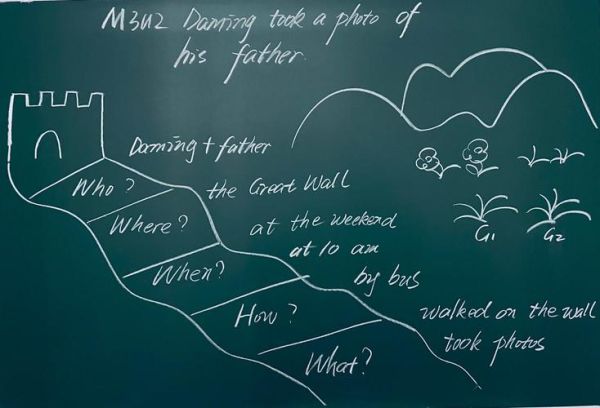 M3U2 Daming took a photo of
his father.
Daming + father
Who?
the Great Wall
Where?
at the weekend
at 10 am
When?
by bus
How?
walked on the wall
took photos
What?
G1
G2